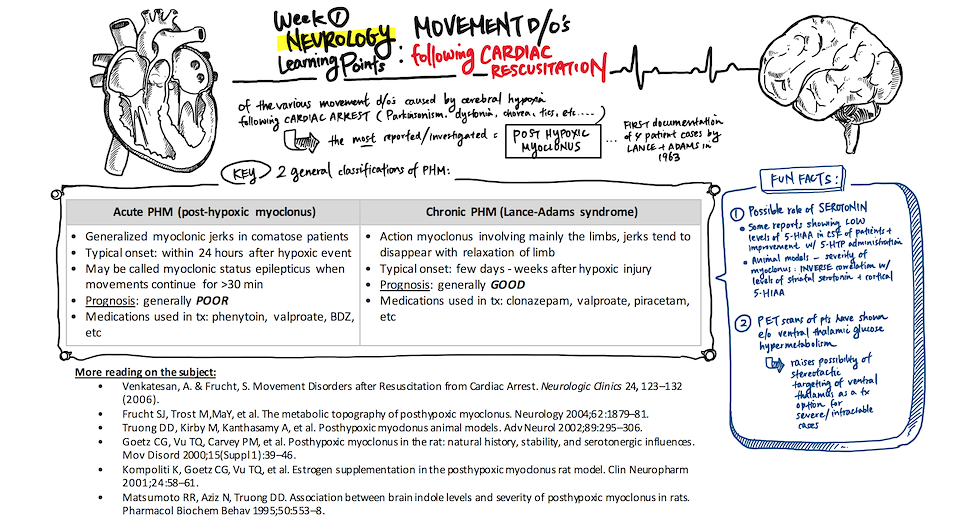 Week ① MOVEMENT D/O's
NEUROLOGY
Learning Points : following CARDIAC
RESCUSITATION
of the various movement d/o's caused by cerebral hypoxia
following CARDIAC ARREST (Parkinsonism, dystonia, chorea, tics, etc....)
the most reported/investigated = POST HYPOXIC
MYOCLONUS
... FIRST documentation
of 4 patient cases by
LANCE + ADAMS in
1963
KEY 2 general classifications of PHM:
Acute PHM (post-hypoxic myoclonus)
• Generalized myoclonic jerks in comatose patients
• Typical onset: within 24 hours after hypoxic event
• May be called myoclonic status epilepticus when
movements continue for >30 min
• Prognosis: generally POOR
• Medications used in tx: phenytoin, valproate, BDZ,
etc
Chronic PHM (Lance-Adams syndrome)
• Action myoclonus involving mainly the limbs, jerks tend to
disappear with relaxation of limb
• Typical onset: few days - weeks after hypoxic injury
• Prognosis: generally GOOD
• Medications used in tx: clonazepam, valproate, piracetam,
etc
FUN FACTS:
① Possible role of SEROTONIN
• Some reports showing LOW
levels of 5-HIAA in CSF of patients +
improvement w/ 5-HTP administration
• Animal models – severity of
myoclonus : INVERSE correlation w/
levels of striatal serotonin + cortical
5-HIAA
② PET scans of pts have shown
e/o ventral thalamic glucose
hypermetabolism
raises possibility of
stereotactic
targeting of ventral
thalamus as a tx
option for
severe/intractable
cases
More reading on the subject:
• Venkatesan, A. & Frucht, S. Movement Disorders after Resuscitation from Cardiac Arrest. Neurologic Clinics 24, 123–132
(2006).
• Frucht SJ, Trost M,MaY, et al. The metabolic topography of posthypoxic myoclonus. Neurology 2004;62:1879–81.
• Truong DD, Kirby M, Kanthasamy A, et al. Posthypoxic myodonus animal models. Adv Neurol 2002;89:295–306.
• Goetz CG, Vu TQ, Carvey PM, et al. Posthypoxic myoclonus in the rat: natural history, stability, and serotonergic influences.
Mov Disord 2000;15(Suppl 1):39–46.
• Kompoliti K, Goetz CG, Vu TQ, et al. Estrogen supplementation in the posthypoxic myodonus rat model. Clin Neuropharm
2001;24:58–61.
• Matsumoto RR, Aziz N, Truong DD. Association between brain indole levels and severity of posthypoxic myoclonus in rats.
Pharmacol Biochem Behav 1995;50:553–8.